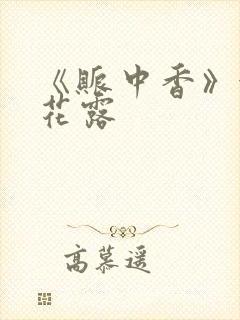 《赈中香》
花露
高慕遥